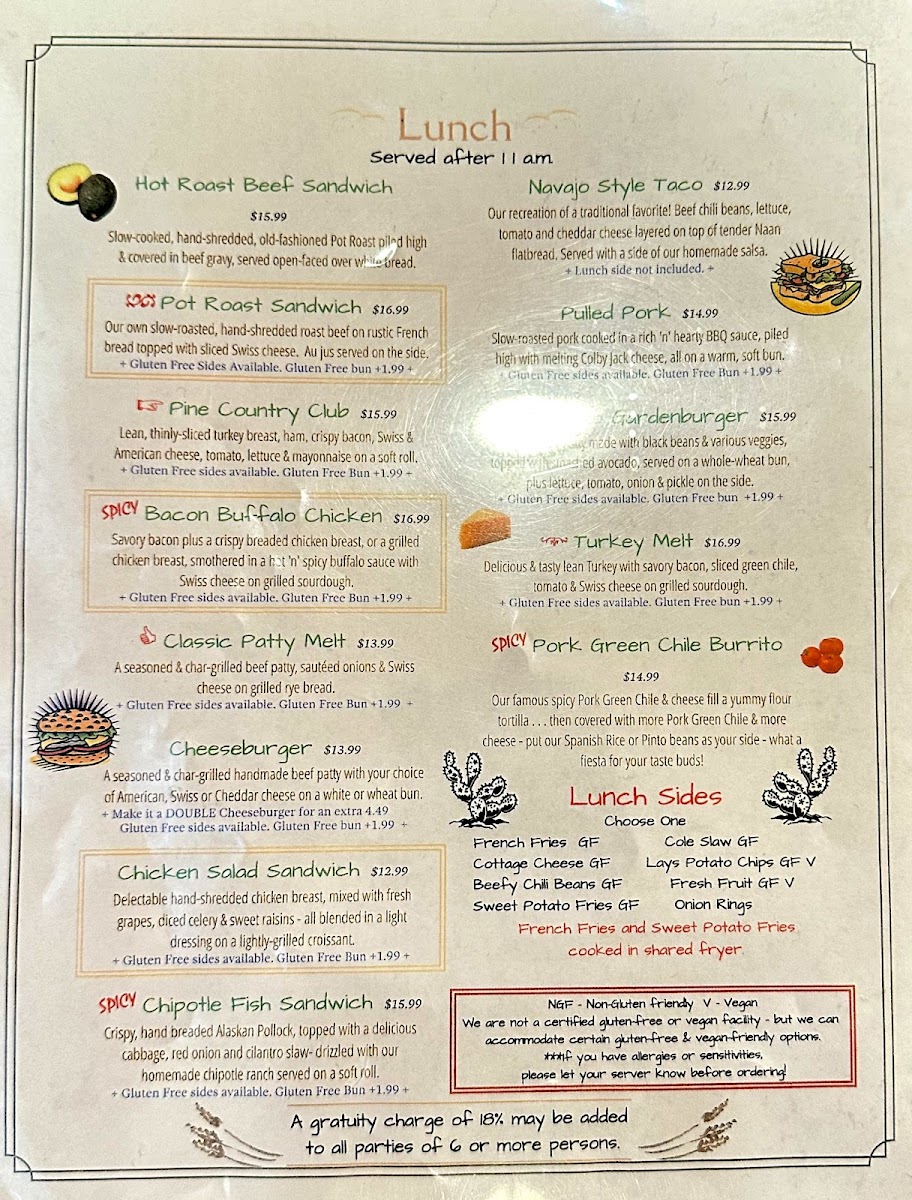 Lunch
Served after 11 am
Hot Roast Beef Sandwich
$15.99
Slow-cooked, hand-shredded, old-fashioned Pot Roast piled high
& covered in beef gravy, served open-faced over white bread.
Pot Roast Sandwich $16.99
Our own slow-roasted, hand-shredded roast beef on rustic French
bread topped with sliced Swiss cheese. Au jus served on the side.
+ Gluten Free Sides Available. Gluten Free bun +1.99 +
Pine Country Club $15.99
Lean, thinly-sliced turkey breast, ham, crispy bacon, Swiss &
American cheese, tomato, lettuce & mayonnaise on a soft roll.
+ Gluten Free sides available. Gluten Free Bun +1.99 +
SPICY Bacon Buffalo Chicken $16.99
Savory bacon plus a crispy breaded chicken breast, or a grilled
chicken breast, smothered in a hot 'n' spicy buffalo sauce with
Swiss cheese on grilled sourdough.
+ Gluten Free sides available. Gluten Free Bun +1.99 +
Classic Patty Melt $13.99
A seasoned & char-grilled beef patty, sautéed onions & Swiss
cheese on grilled rye bread.
+ Gluten Free sides available. Gluten Free Bun +1.99 +
Cheeseburger $13.99
A seasoned & char-grilled handmade beef patty with your choice
of American, Swiss or Cheddar cheese on a white or wheat bun.
+ Make it a DOUBLE Cheeseburger for an extra 4.49
Gluten Free sides available. Gluten Free bun +1.99 +
Chicken Salad Sandwich $12.99
Delectable hand-shredded chicken breast, mixed with fresh
grapes, diced celery & sweet raisins - all blended in a light
dressing on a lightly-grilled croissant.
+ Gluten Free sides available. Gluten Free Bun +1.99 +
SPICY Chipotle Fish Sandwich $15.99
Crispy, hand breaded Alaskan Pollock, topped with a delicious
cabbage, red onion and cilantro slaw- drizzled with our
homemade chipotle ranch served on a soft roll.
+ Gluten Free sides available. Gluten Free Bun +1.99 +
Navajo Style Taco $12.99
Our recreation of a traditional favorite! Beef chili beans, lettuce,
tomato and cheddar cheese layered on top of tender Naan
flatbread. Served with a side of our homemade salsa.
+ Lunch side not included. +
Pulled Pork $14.99
Slow-roasted pork cooked in a rich 'n' hearty BBQ sauce, piled
high with melting Colby Jack cheese, all on a warm, soft bun.
+ Gluten Free sides available. Gluten Free Bun +1.99 +
Gardenburger $15.99
made with black beans & various veggies,
topped with avocado, served on a whole-wheat bun,
plus lettuce, tomato, onion & pickle on the side.
+ Gluten Free sides available. Gluten Free bun +1.99 +
Turkey Melt $16.99
Delicious & tasty lean Turkey with savory bacon, sliced green chile,
tomato & Swiss cheese on grilled sourdough.
+ Gluten Free sides available. Gluten Free bun +1.99 +
SPICY Pork Green Chile Burrito
$14.99
Our famous spicy Pork Green Chile & cheese fill a yummy flour
tortilla . . . then covered with more Pork Green Chile & more
cheese - put our Spanish Rice or Pinto beans as your side - what a
fiesta for your taste buds!
Lunch Sides
Choose One
French Fries GF Cole Slaw GF
Cottage Cheese GF Lays Potato Chips GF V
Beefy Chili Beans GF Fresh Fruit GF V
Sweet Potato Fries GF Onion Rings
French Fries and Sweet Potato Fries
cooked in shared fryer.
NGF - Non-Gluten friendly V - Vegan
We are not a certified gluten-free or vegan facility - but we can
accommodate certain gluten-free & vegan-friendly options.
***If you have allergies or sensitivities,
please let your server know before ordering!
A gratuity charge of 18% may be added
to all parties of 6 or more persons.